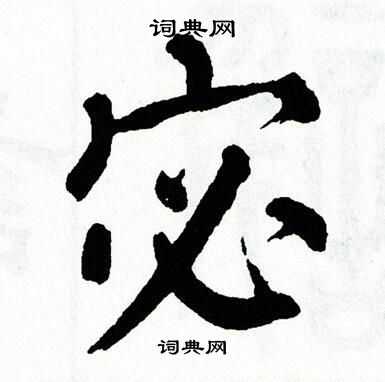 词典网
宓
词典网